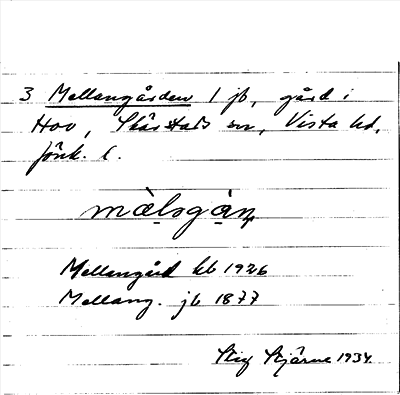 3 Mellangården 1 jb, gård i
Hov, Skärstads sn, Vista hd,
Jönk. l.
mæ̀lsgàṇ
Mellangård kb 1926
Mellang. jb 1877
Stig Stjärne 1934